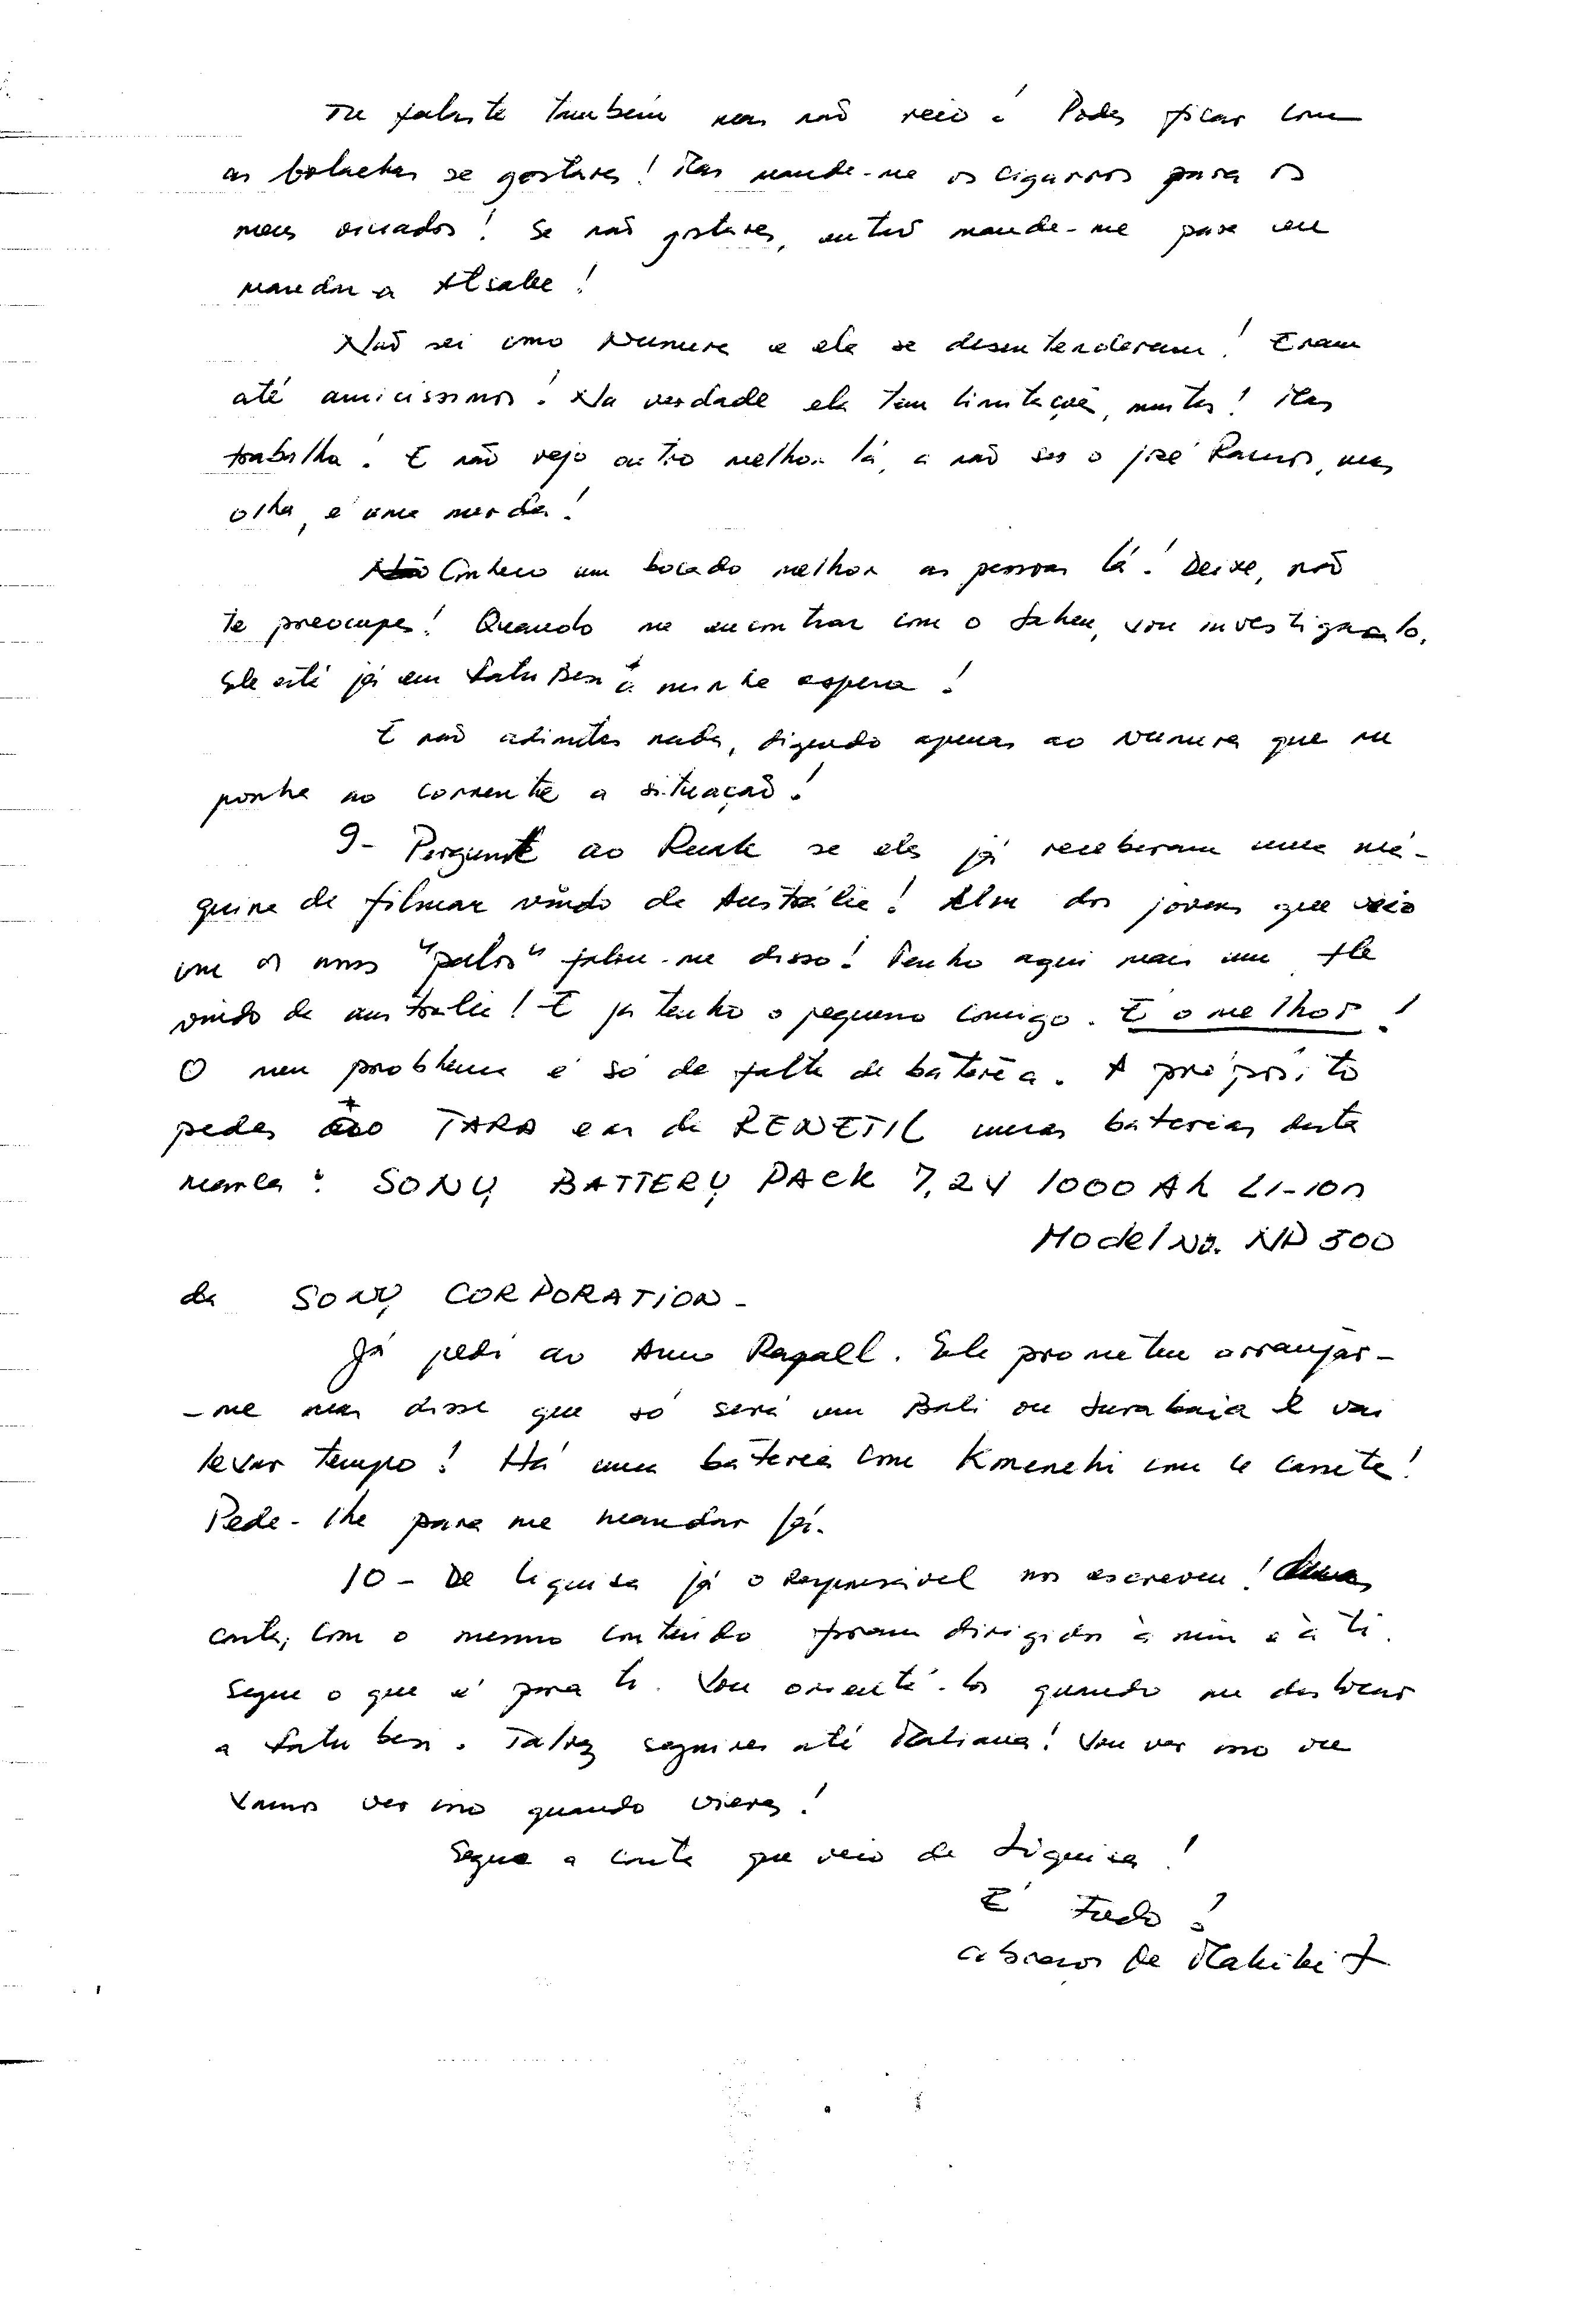 Tu falaste também mas não veio! Podes ficar com
as bolachas se gostares! Mas mande-me os cigarros para os
meus viciados! Se não gostares, então mande-me para eu
mandar a Atsabe!
Não sei como Numura e ele se desentenderam! Eram
até amicissimos! Na verdade ele tem limitações, muitas! Mas
trabalha! E não vejo outro melhor lá, a não ser o José Ramos, mas
olha, é uma merda!
Conheço um bocado melhor as pessoas lá! Deixe, não
te preocupes! Quando me encontrar com o vou investigá-lo.
Ele está já em Fatu Besi à minha espera!
E não adimites nada, dizendo apenas ao Numura que me
ponha ao corrente a situação!
9- Pergunte ao Ruak se eles já receberam uma má-
quina de filmar vindo da Austrália! Um dos jovens que veio
com os nossos "pulos" falou-me disso! Tenho aqui mais um
vindo da austrália! E já tenho o pequeno comigo. É o melhor!
O meu problema é só de falta de bateria. A própósito
pedes ao TARA e os da RENETIL umas baterias desta
marca: SONY BATTERY PACK 7,2V 1000 Ah LI-ION
Model No. NP 500
da SONY CORPORATION -
Já pedi ao Ele prometeu arranjar-
-me mas disse que só será em Bali ou Surabaia e vai
levar tempo! Há uma bateria com Kmenehi com a cassete!
Pede-lhe para me mandar já.
10- De Liquisa já o responsável nos escreveu!
cartas com o mesmo conteúdo foram dirigidas à mim e à ti.
Segue o que é para ti. Vou orientá-los quando me deslocar
a Fatu besi. Talvez seguires até Maliana! Vou ver isso ou
vamos ver isso quando vieres!
Segue a carta que veio de Liquisa!
É tudo!
abraços de Mahiki